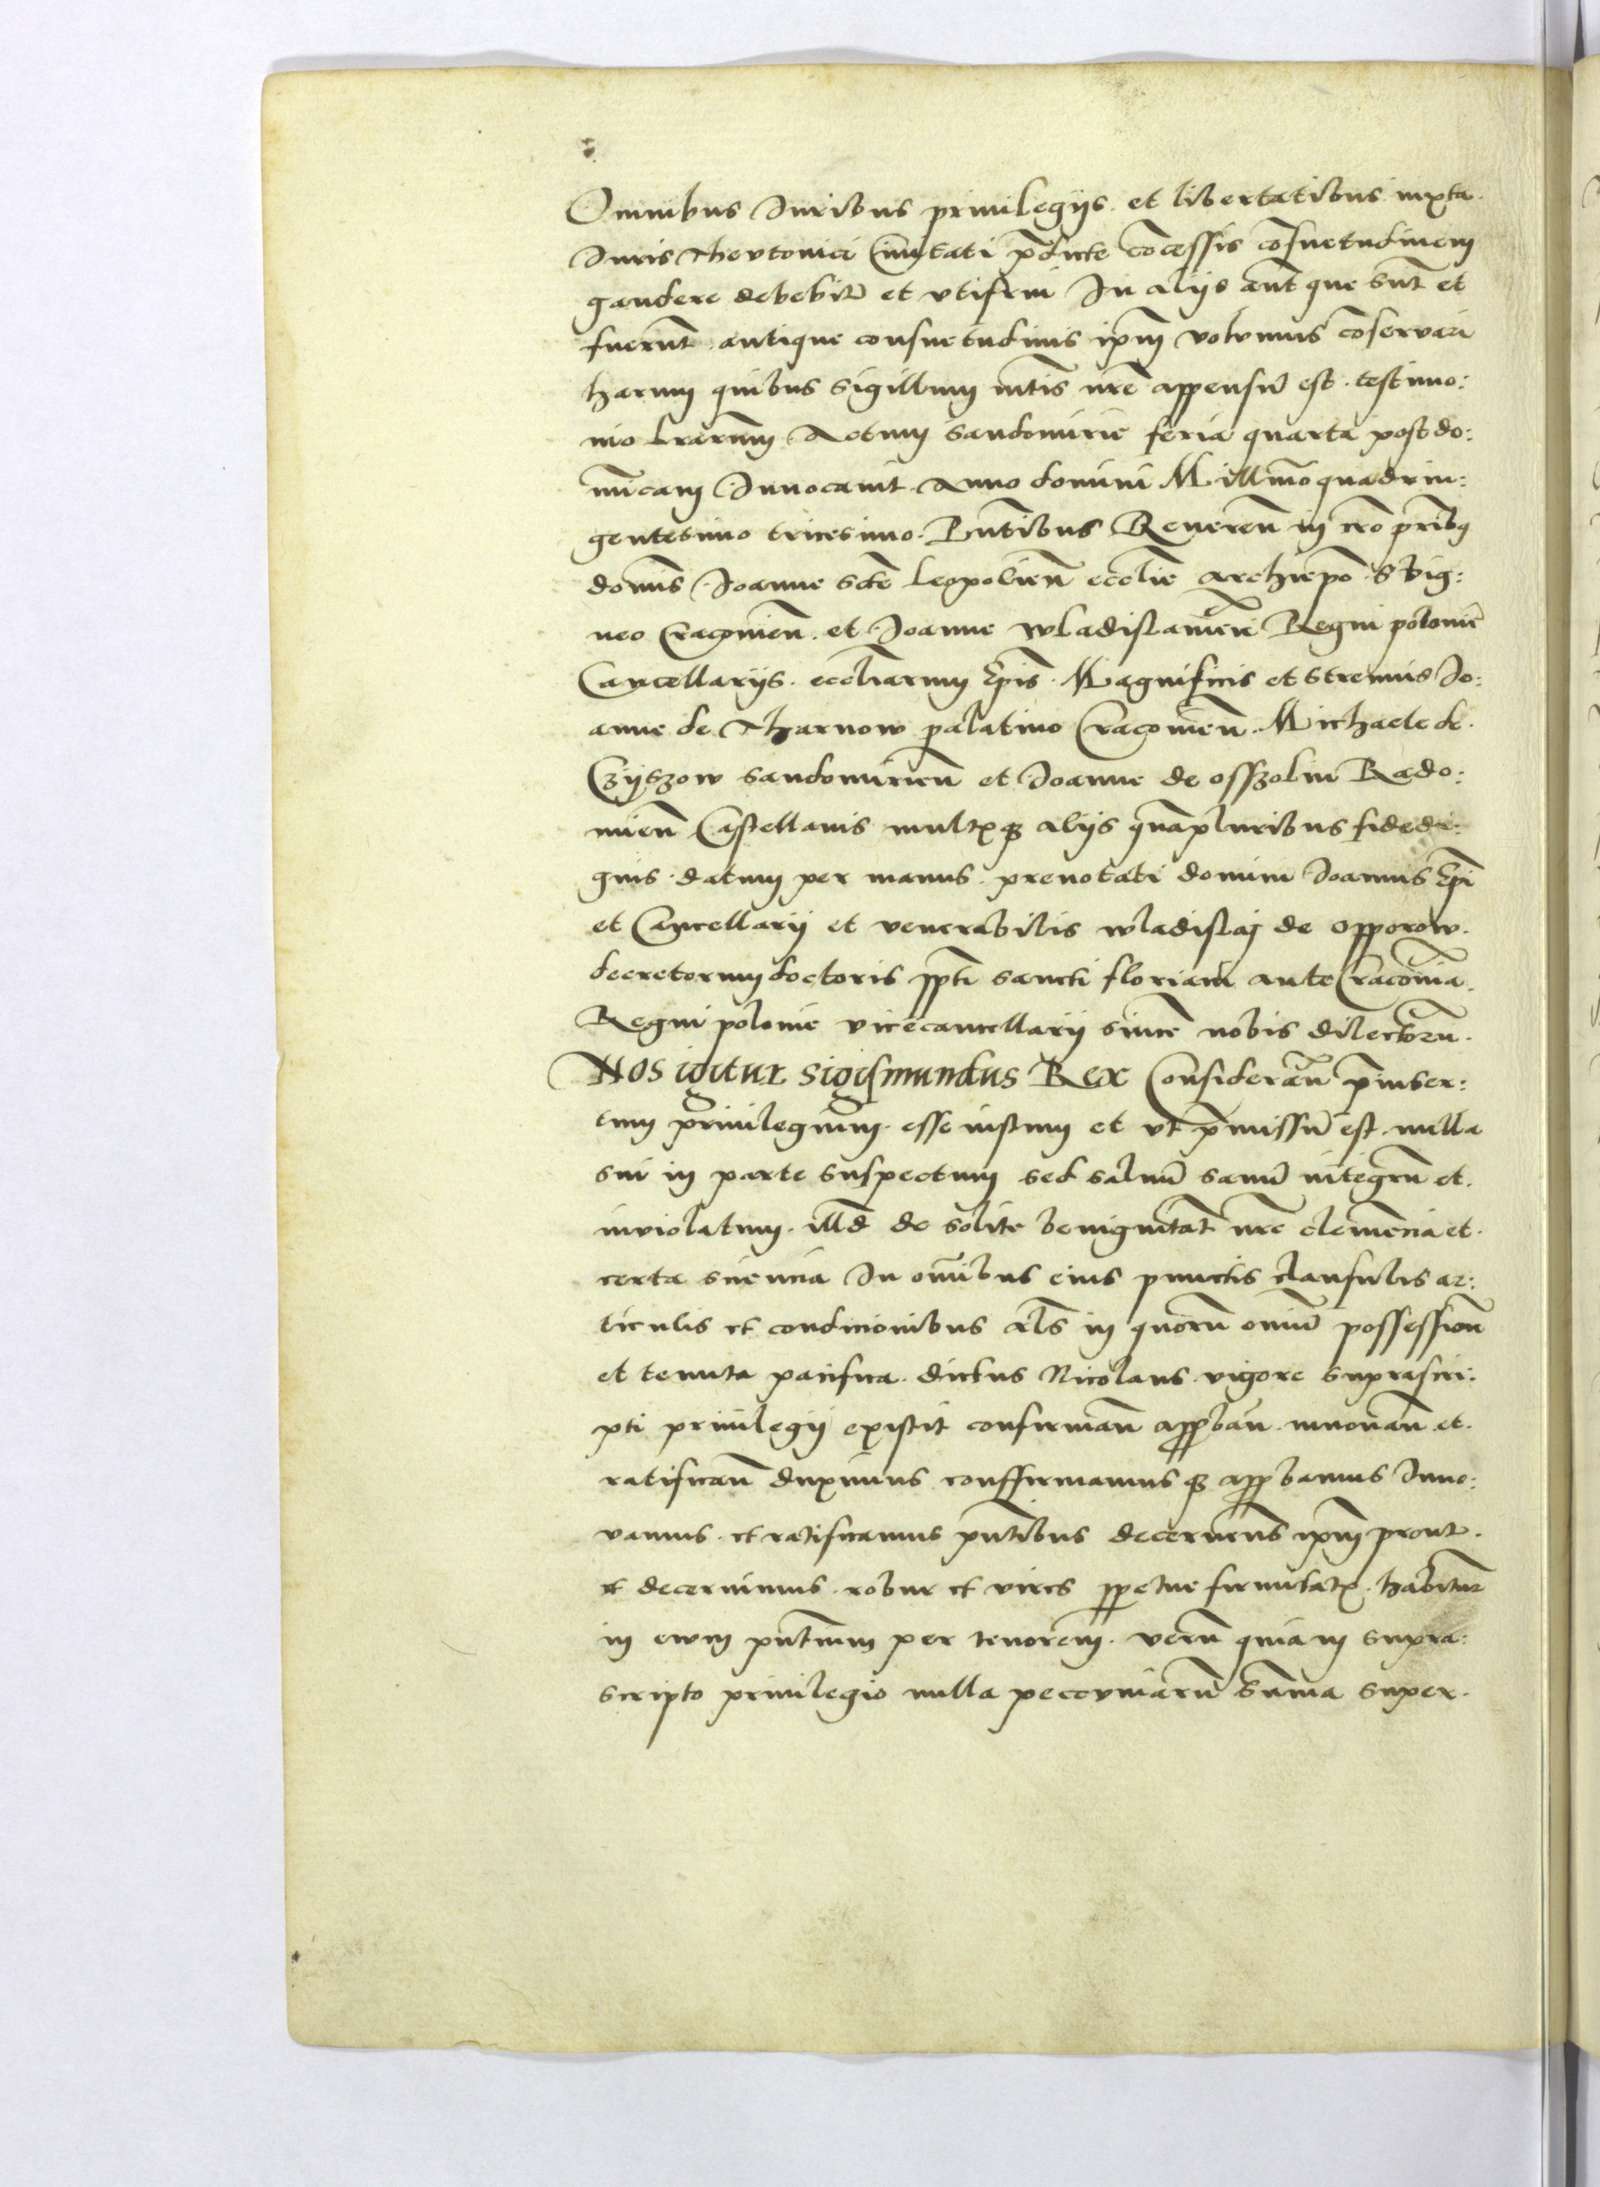 Omnibus Iuribus priuilegijs et libertatibus iuxta
Iuris Theutonici Ciuitati p̄dicte cōcessis cōsuetudinem
gaudere debebit et vtifrui In alijs aūt que sunt et
fuerunt antique consuetudinis ip̄m volumus cōservari
harum quibus sigillum mtīs nr̄e appensū est testimo:
nio lrārum Actum Sandomirie feria quarta post do:
mīcam Inuocauit Anno domini Millīmo quadrin:
gentesimo tricesimo. Pntībus Reueren̄ in cr̄o pr̄ibq
domīs Ioanne scē Leopolien̄ ecclīe Archiepo Sbig:
neo Cracouien̄. et Ioanne Wladislauien̄ Regni polonie
Cancellarijs. ecclīarum Epīs. Magnificis et strenuis Io:
anne de Tharnow palatino Cracouien̄. Michaele de
Czijszow Sandomirien̄ et Ioanne de Osszolin Rado:
mien̄ Castellanis multisq alijs quāpluribus fidedi:
gnis. datum per manus prenotati domini Ioannis Epī
et Cancellarij et venerabilis Wladislaj de Opporow
decretorum doctoris ppti sancti floriani ante Cracouiā
Regni polonie vicecancellarij sincē nobis dilectorū.
Nos igitur Sigismundus Rex Consideran̄ p̄inser:
tum priuilegium esse iustum et vt p̄missū est nulla
sui in parte suspectum sed saluū sanū integrū et
inviolatum illd̄ de solite benignitat nr̄e clemēcia et
certa sciencia In omībus eius punctis clausulis ar:
ticulis et condicionibus als̄ in quorū omīū possession̄
et tenuta pacifica dictus Nicolaus vigore suprascri:
pti priuilegij existit confirmān approbān innouān et
ratificān duximus conffirmamusq approbamus Inno:
vamus et ratificamus pn̄tibus decernens̄ ip̄m prout
et decernimus robur et vires perpetue firmitatis habitur̄
in ewm pn̄tium per tenorem. verū quia in supra:
scripto priuilegio nulla peccuniarū sum̄a super